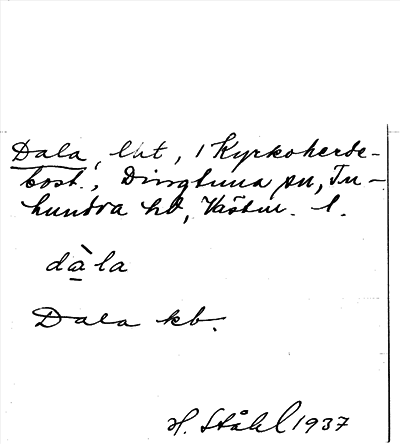 Dala, lht, i Kyrkoherde-
bost., Dingtuna sn, Tu-
hundra hd, Västm. l.
dàla
Dala kb.
H. Ståhl 1937